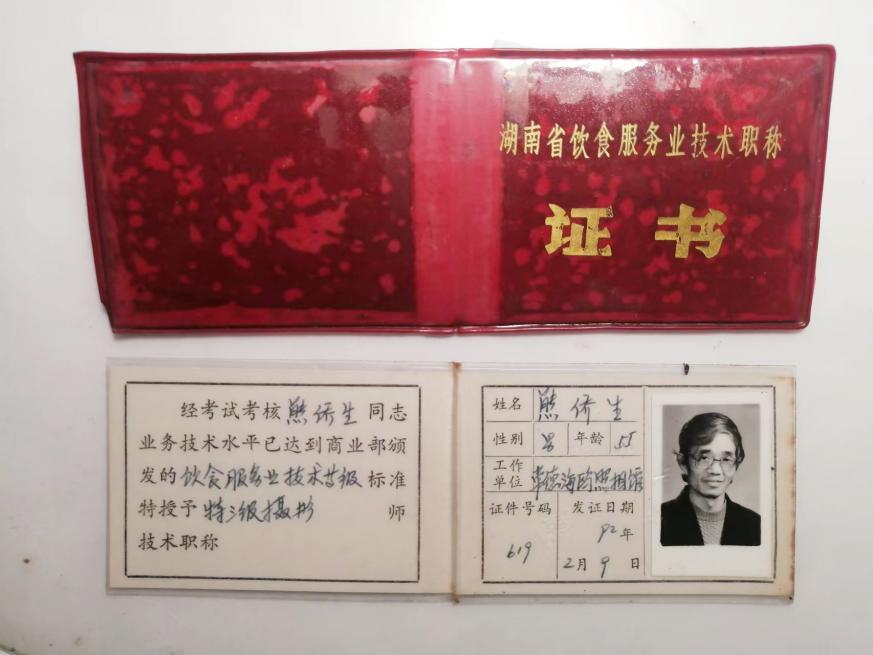 湖南省饮食服务业技术职称
证书
经考试考核熊侨生同志
业务技术水平已达到商业部颁
发的饮食服务业技术等级标准
特授予特三级摄影师
技术职称
姓名 熊侨生
性别 男 年龄 55
工作单位 常德海鸥照相馆
证件号码 发证日期
92年
619 2月9日